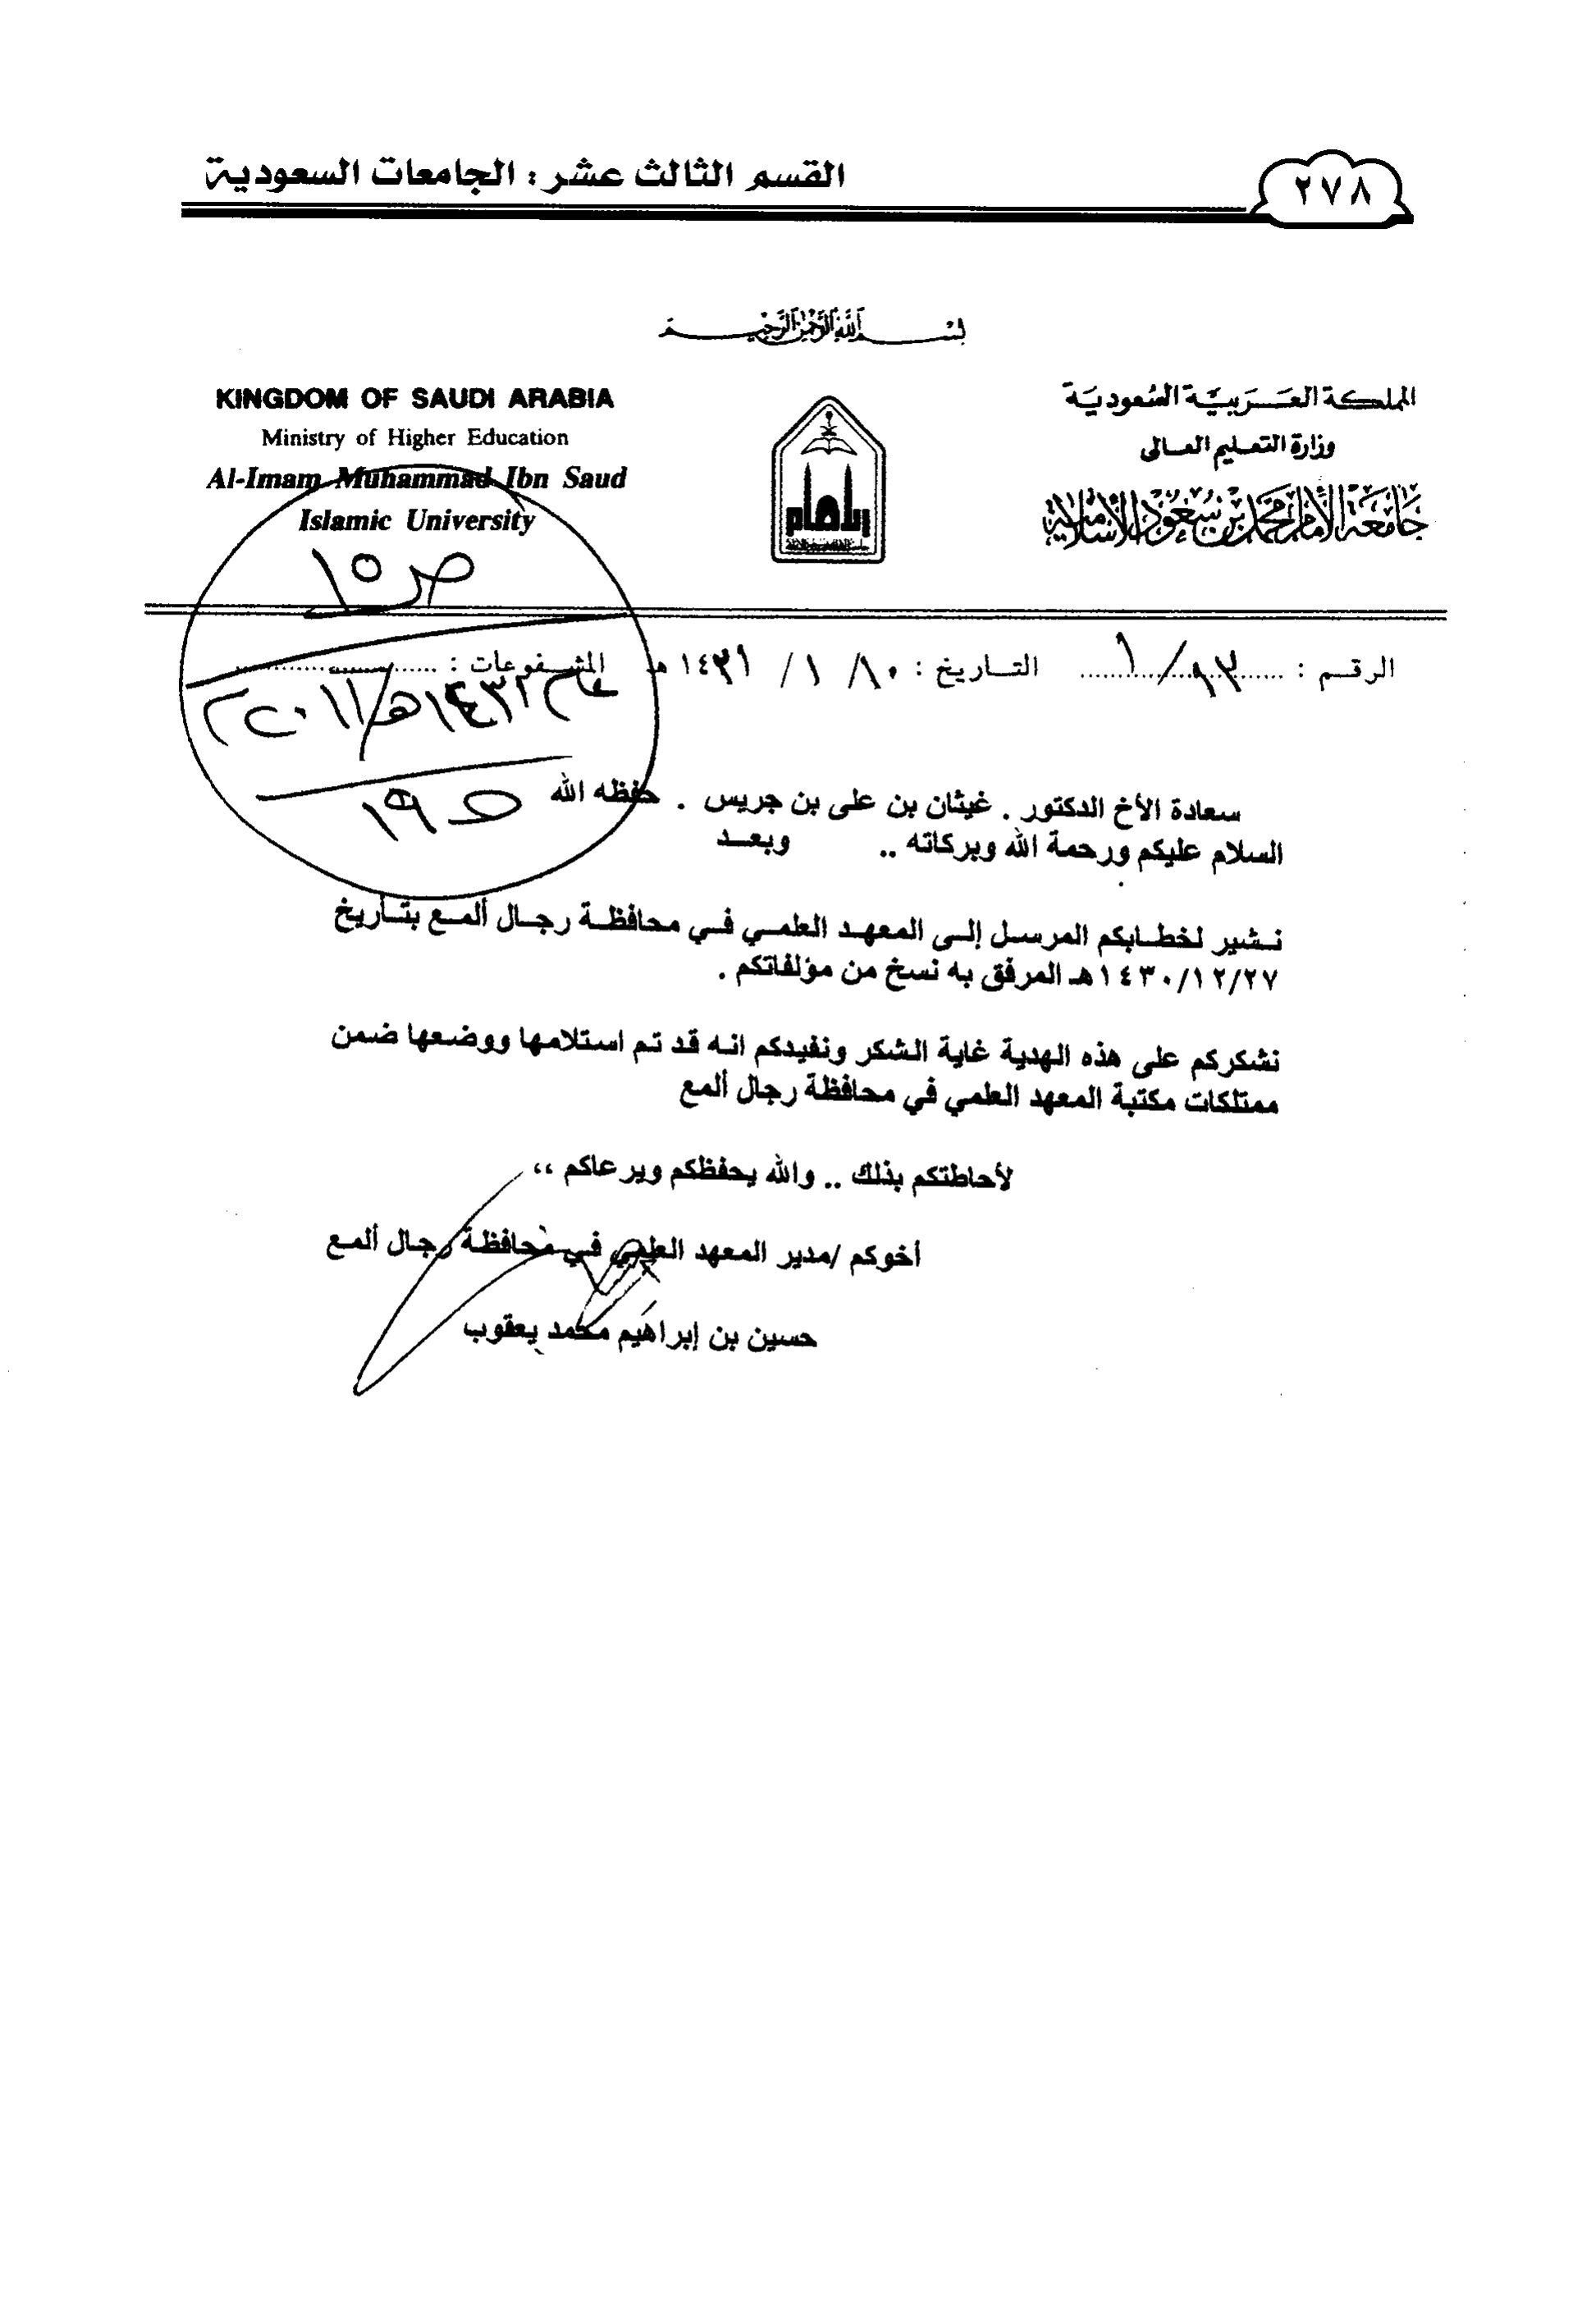 القسم الثالث عشر : الجامعات السعودية
٢٧٨
بسم الله الرحمن الرحيم
المملكة العربية السعودية
وزارة التعليم العالى
جامعة الإمام محمد بن سعود الإسلامية
KINGDOM OF SAUDI ARABIA
Ministry of Higher Education
Al-Imam Muhammad Ibn Saud
Islamic University
ص ١٥
الرقم : ٩٣/١ التاريخ : ١٠ / ١ / ١٤٣١ هـ المشفوعات :
عام ١٤٣٢هـ/٢٠١١م
سعادة الأخ الدكتور . غيثان بن على بن جريس . حفظه الله
السلام عليكم ورحمة الله وبركاته .. وبعد
نشير لخطابكم المرسل إلى المعهد العلمي في محافظة رجال ألمع بتأريخ
١٤٣٠/١٢/٢٧هـ المرفق به نسخ من مؤلفاتكم .
نشكركم على هذه الهدية غاية الشكر ونفيدكم انه قد تم استلامها ووضعها ضمن
ممتلكات مكتبة المعهد العلمي في محافظة رجال ألمع
لأحاطتكم بذلك .. والله يحفظكم ويرعاكم ،،
أخوكم /مدير المعهد العلمي في محافظة رجال ألمع
حسين بن إبراهيم محمد يعقوب